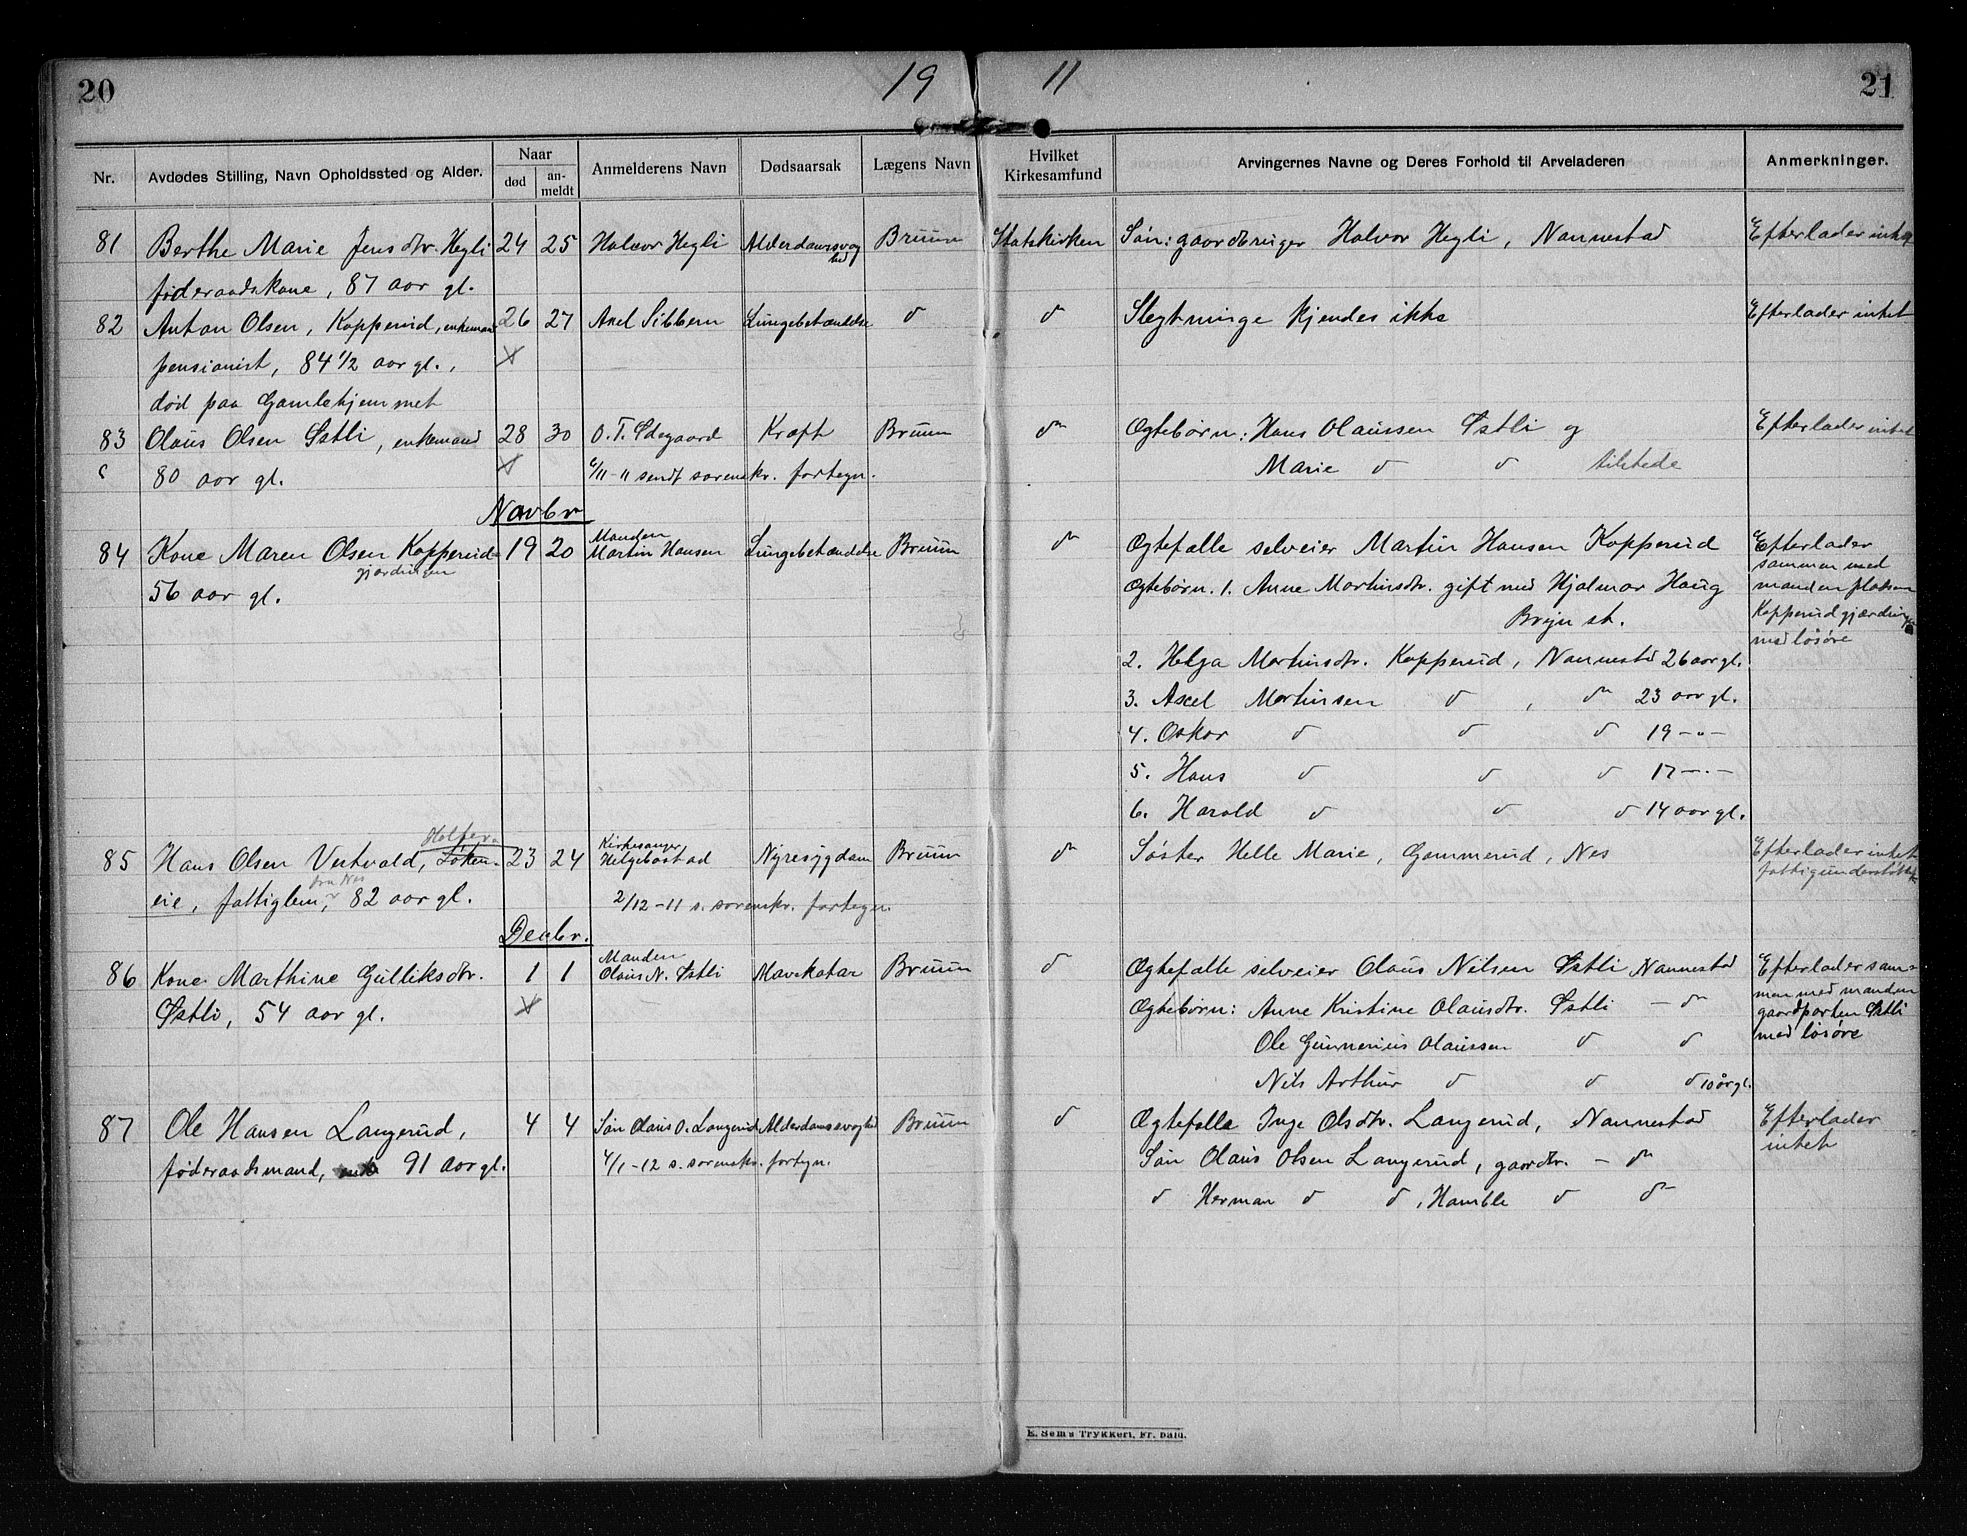 20 19 11 21
Nr. Avdødes Stilling, Navn Opholdssted og Alder. Naar død an-meldt Anmelderens Navn Dødsaarsak Lægens Navn Hvilket Kirkesamfund Arvingernes Navne og Deres Forhold til Arveladeren Anmerkninger.
81 Berthe Marie Jensdtr. Hegli 24 25 Halvor Hegli Alderdomsvag Bruun Statskirken Søn: gaardbruger Halvor Hegli, Nannestad Efterlader intet
hed
føderaadskone, 87 aar gl.
82 Anton Olsen, Kopperud, enkemand 26 27 Axel Sibbern Lungebetændelse d d Slegtninge kjendes ikke Efterlader intet
pensionist, 84 1/2 aar gl., X
død paa Gamlehjemmet
83 Olaus Olsen Østli, enkemand 28 30 O. T. Ødegaard Kræft Bruun do Ægtebørn: Hans Olaussen Østli og Efterlader intet
80 aar gl. X 6/11-11 sendt sorenskr. fortegn. Marie d d tilstede
Novbr
84 Kone Maren Olsen Kopperud- 19 20 Manden Martin Hansen Lungebetændelse Bruun do Ægtefælle selveier Martin Hansen Kopperud Efterlader
gjærdingen sammen med
56 aar gl. Ægtebørn. 1. Anne Martinsdtr. gift med Hjalmar Haug manden pladsen
Bryn st. Kopperudgjærdingen
med løsøre
2. Helga Martinsdtr. Kopperud, Nannestad 26 aar gl.
3. Axel Martinsen d , do 23 aar gl.
4. Oskar d d d 19 -"-
5. Hans d d d 17 -"-
6. Harald d d d 14 aar gl.
85 Hans Olsen Vestvold, Løken- 23 24 Kirkesanger Helgebostad Nyresygdom Bruun do Søster Helle Marie, Gammerud, Nes Efterlader intet
fra Nes
eie, fattiglem, 82 aar gl. 2/12-11 s. sorenskr. fortegn.
Decbr.
86 Kone Marthine Gulliksdtr. 1 1 Manden Olaus N. Østli Mavekatar Bruun d Ægtefælle selveier Olaus Nilsen Østli Nannestad Efterlader sam-
men med manden
Østli, 54 aar gl. X Ægtebørn: Anne Kristine Olausdtr. Østli - do gaardparten Østli
Ole Gunnerius Olaussen d d med løsøre
Nils Arthur d d d 10 år gl.
87 Ole Hansen Langerud, 4 4 Søn Olaus O. Langerud Alderdomssvaghed Bruun d Ægtefælle Inge Olsdtr. Langerud, Nannestad Efterlader
intet
føderaadsmand, 91 aar gl. 4/1-12 s. sorenskr. fortegn. Søn Olaus Olsen Langerud, gaardbr. - do
d Herman d d, Hamble d do
E. Sem's Trykkeri, Fr.hald.